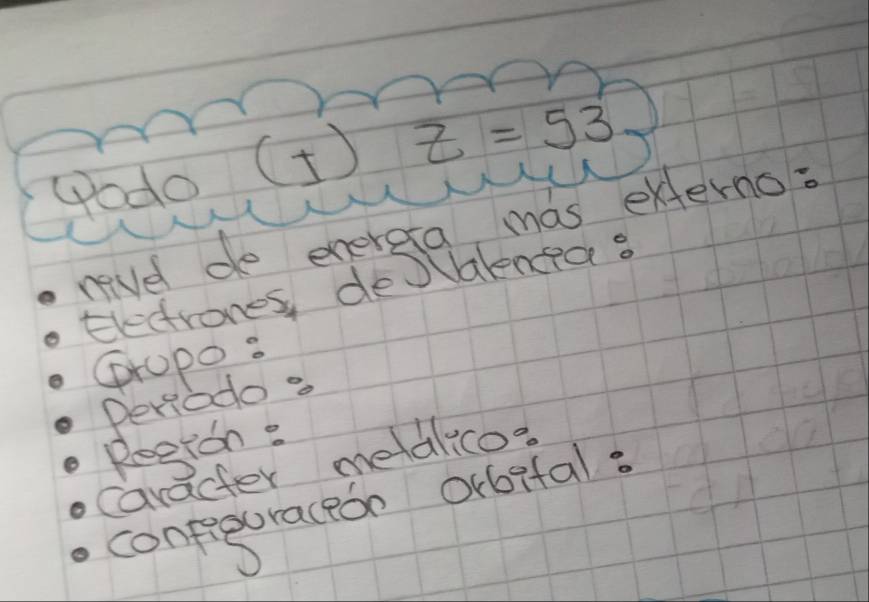 Yodo (I) Z = 53
• nivel de energía más externo:
• Electrones de Valencia:
• Grupo:
• Periodo:
• Región:
• Carácter metálico:
• Configuración orbital: